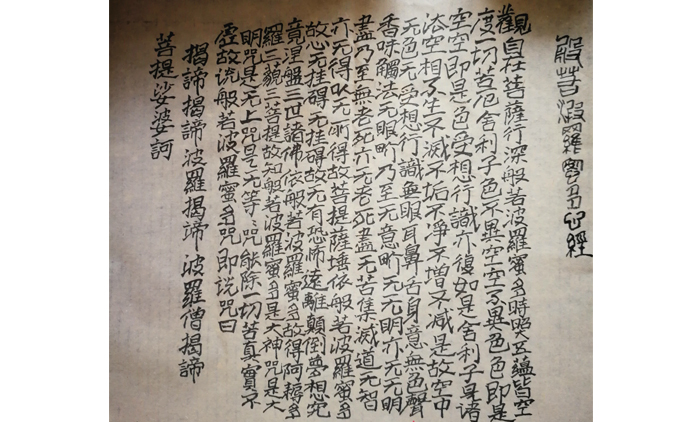 般若波羅蜜多心經
觀自在菩薩行深般若波羅蜜多時照五蕴皆空
度一切苦厄舍利子色不異空空不異色色即是
空空即是色受想行識亦復如是舍利子是諸
法空相不生不滅不垢不净不增不减是故空中
无色无受想行識無眼耳鼻舌身意無色聲
香味觸法无眼界乃至无意界无无明亦无无明
盡乃至無老死亦无老死盡无苦集滅道无智
亦无得以无所得故菩提薩埵依般若波羅蜜多
故心无挂碍无挂碍故无有恐怖遠離顛倒夢想究
竟涅盤三世諸佛依般若波羅蜜多故得阿耨多
羅三藐三菩提故知般若波羅蜜多是大神咒是大
明咒是无上咒是无等咒能除一切苦真實不
虚故说般若波羅蜜多咒即说咒曰
揭諦揭諦波羅揭諦波羅僧揭諦
菩提娑婆訶